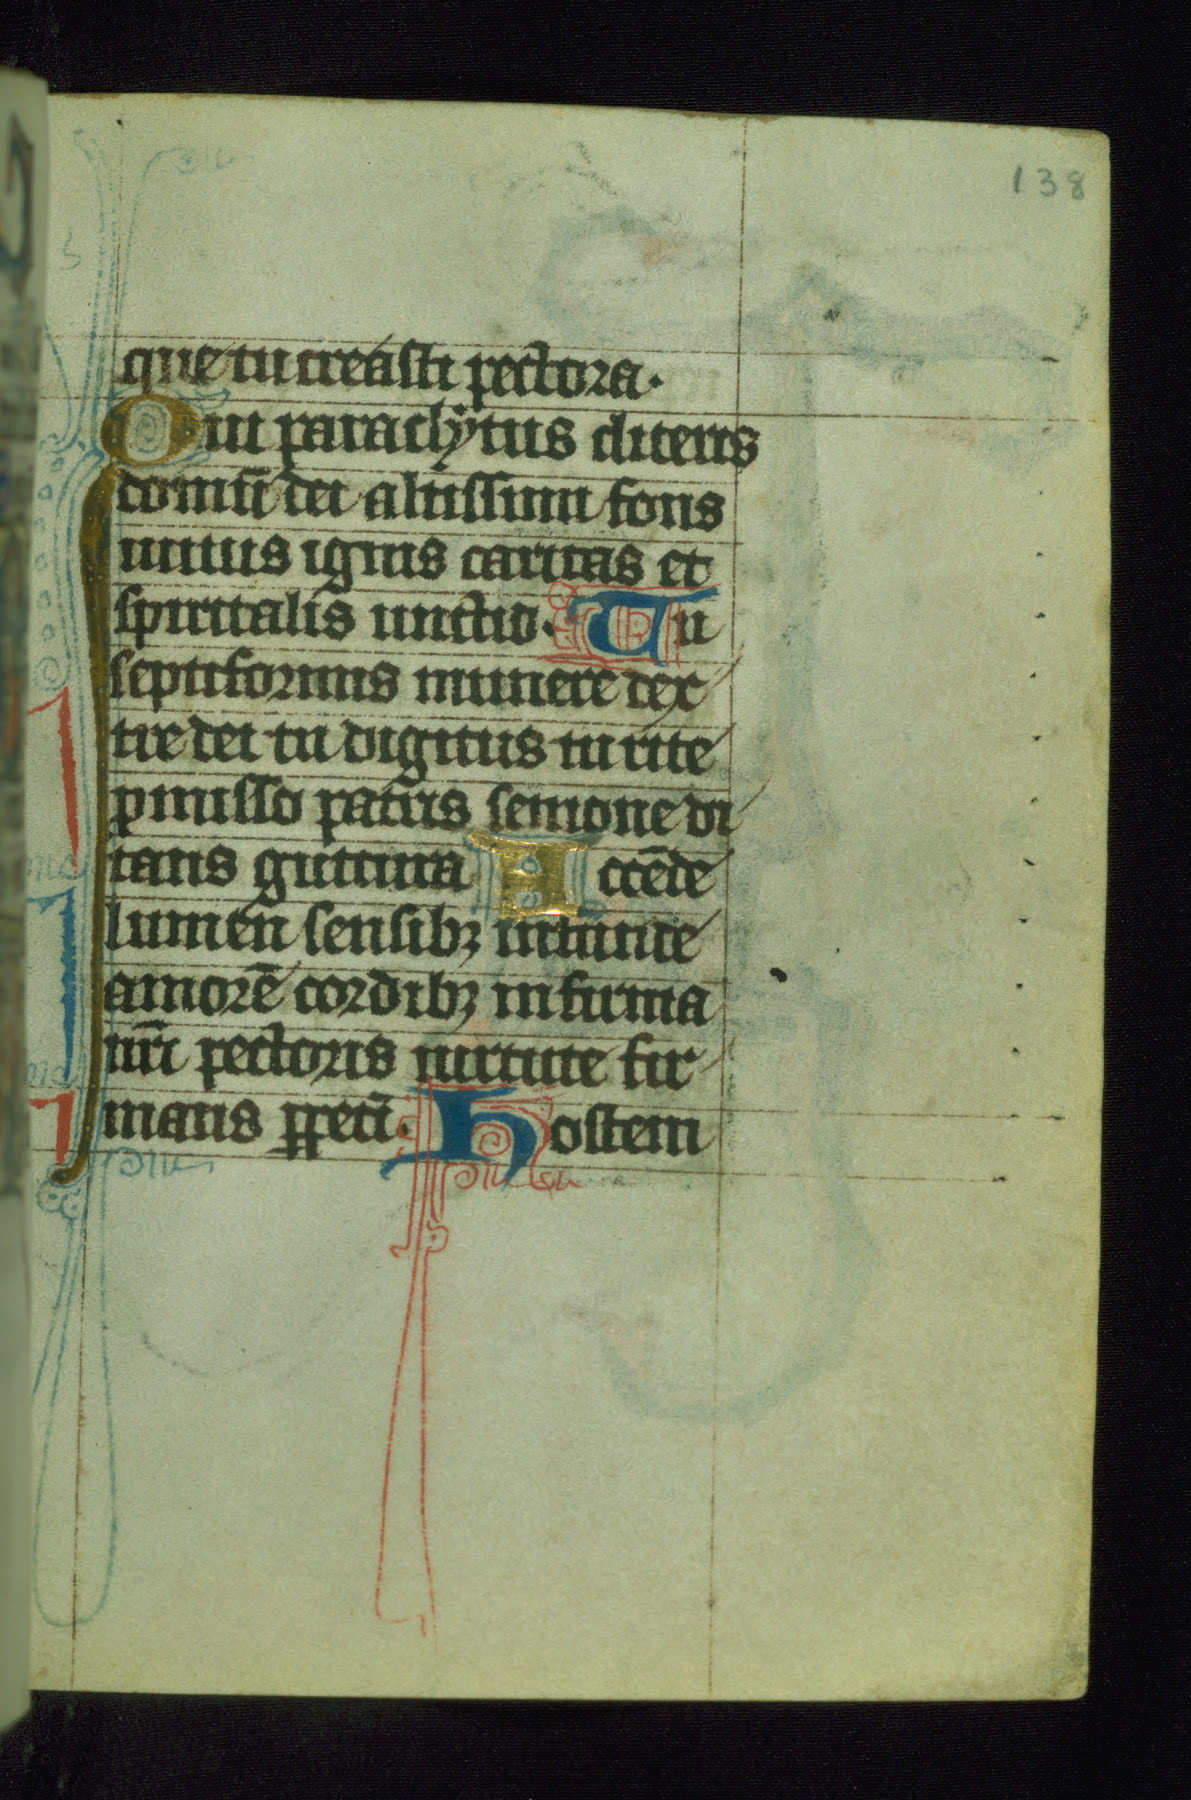 138
que tu creasti pectora.
Qui paraclytus diceris
domū dei altissimi fons
uiuus ignis caritas et
spiritalis unctio. Tu
septiformis munere dex
tre dei tu digitus tu rite
ꝓmisso patris sermone di
tans guttura Accēde
lumen sensibꝫ infunde
amorē cordibꝫ infirma
nr̄i pectoris uirtute fir
mans ꝑpeti. Hostem